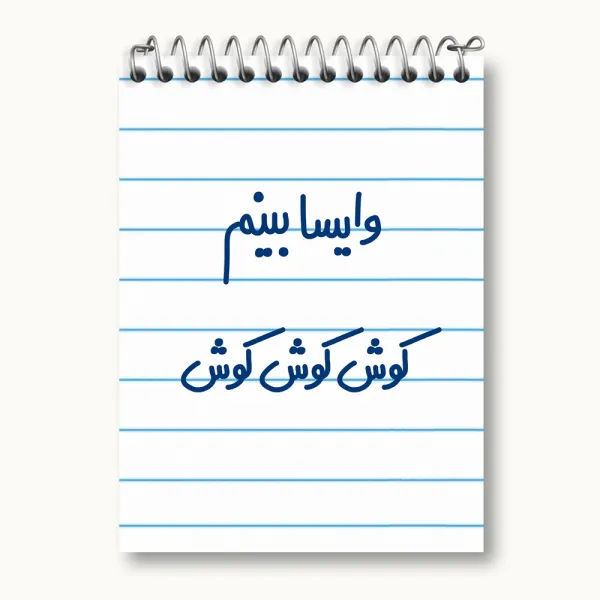 وایسا ببینم
کوش کوش کوش